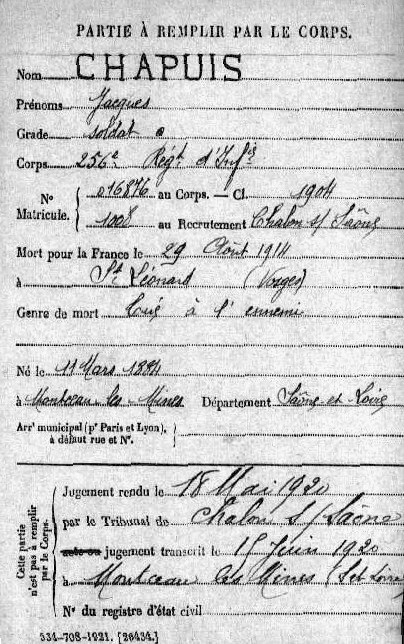 PARTIE À REMPLIR PAR LE CORPS.
Nom CHAPUIS
Prénoms Jacques
Grade soldat
Corps 256e Régt d'Infie
Nº Matricule. 016876 au Corps. — Cl. 1904
1008 au Recrutement Chalon s/ Saône
Mort pour la France le 29 Août 1914
à St Léonard (Vosges)
Genre de mort Tué à l'ennemi
Né le 11 Mars 1884
à Montceau-les-Mines Département Saône et Loire
Arrt municipal (pr Paris et Lyon),
à défaut rue et Nº.
Cette partie n'est pas à remplir par le Corps.
Jugement rendu le 18 Mai 1920
par le Tribunal de Chalon s/ Saône
acte ou jugement transcrit le 15 Juin 1920
à Montceau les Mines (S et Loire)
Nº du registre d'état civil
534-708-1921. [26434.]